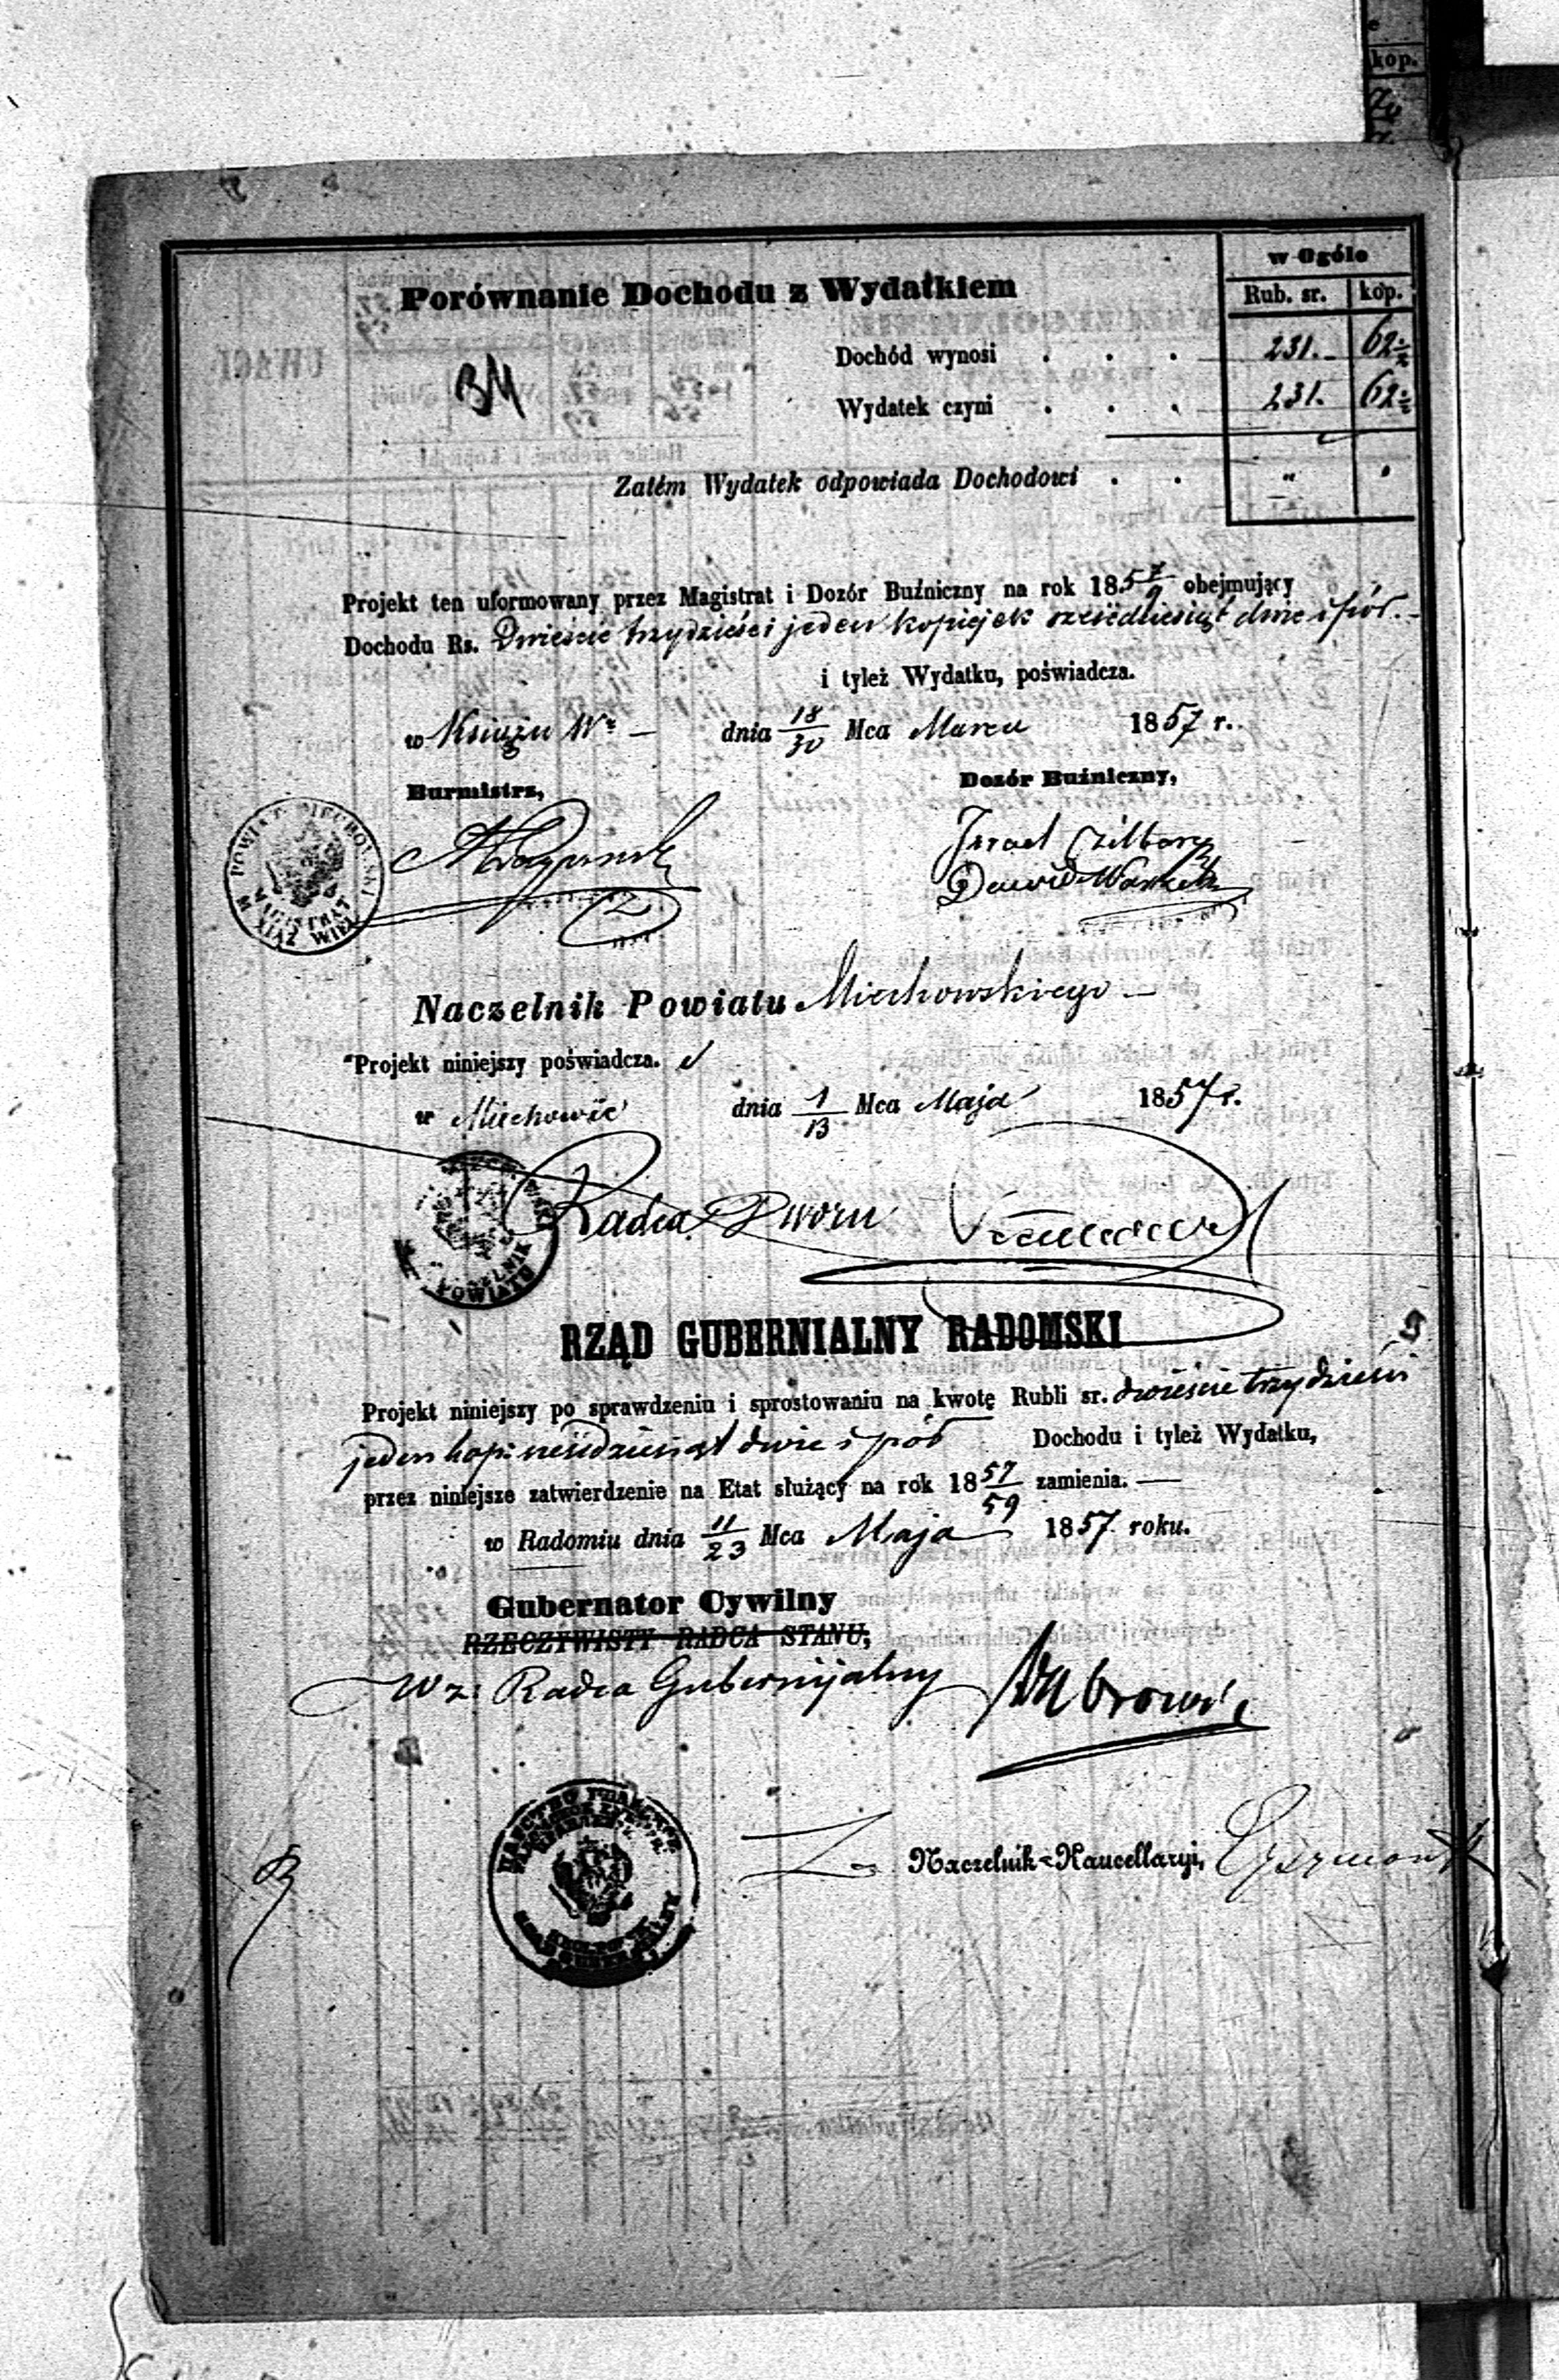 kop.
w Ogóle
Porównanie Dochodu z Wydatkiem
Rub. sr. kop.
Dochód wynosi . . . 231. 62½
Wydatek czyni . . . 231. 62½
Zatém Wydatek odpowiada Dochodowi . . "
Projekt ten uformowany przez Magistrat i Dozór Buźniczny na rok 185 7/9 obejmujący
Dochodu Rs. Dwieście trzydzieści jeden kopiejek sześćdziesiąt dwie i pół.
i tyleż Wydatku, poświadcza.
w Książu Wᵏ dnia 18/30 Mca Marca 1857 r.
Burmistrz, Dozór Buźniczny,
Dawid
POWIAT MIECHOWSKI
MAGISTRAT
M. KSIĄŻ WIEL
Naczelnik Powiatu Miechowskiego
Projekt niniejszy poświadcza.
w Miechowie dnia 1/13 Mca Maja 1857 r.
Radca Dworu
NACZELNIK
POWIATU
RZĄD GUBERNIALNY RADOMSKI
Projekt niniejszy po sprawdzeniu i sprostowaniu na kwotę Rubli sr. dwieście trzydzieści
jeden kop: sześćdziesiąt dwie i pół Dochodu i tyleż Wydatku,
przez niniejsze zatwierdzenie na Etat służący na rok 18 57/59 zamienia.
w Radomiu dnia 11/23 Mca Maja 1857 roku.
Gubernator Cywilny
RZECZYWISTY RADCA STANU,
W z: Radca Gubernijalny
Za Naczelnik-Kancellaryi,